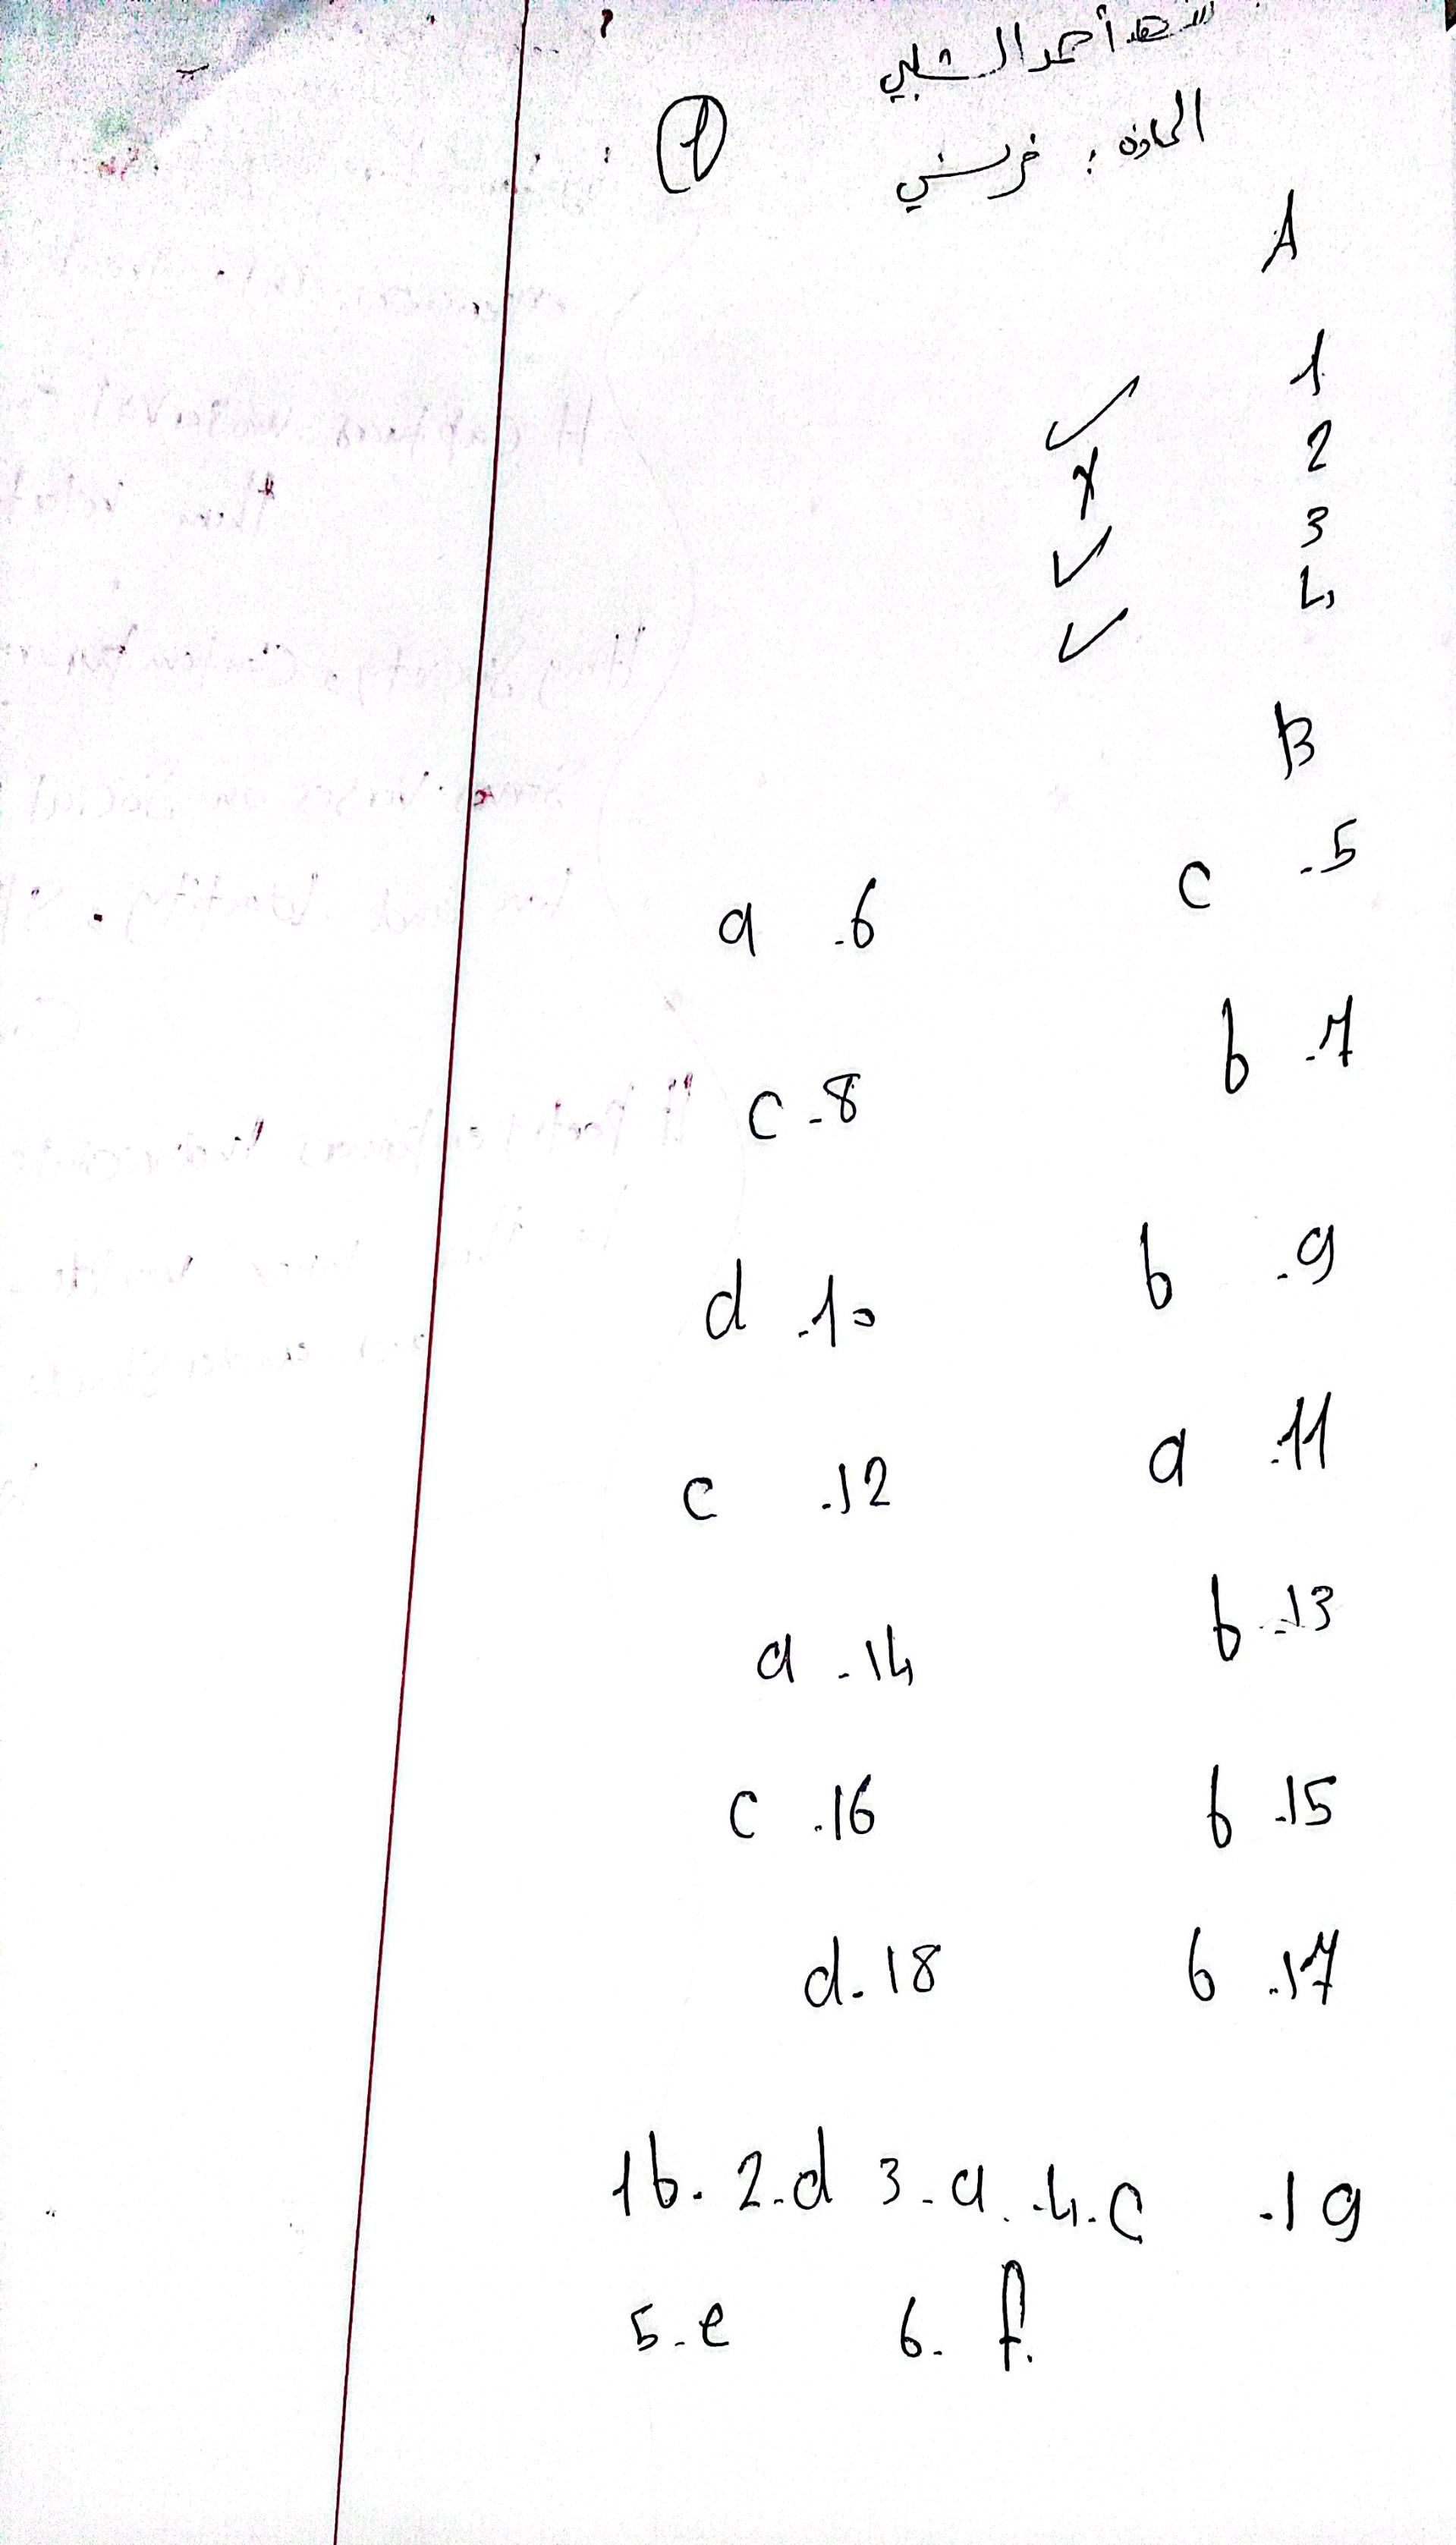 أحمد الشلبي
المادة : فرنسي
1
A
1 ✓
2 x
3 ✓
4 ✓
B
5. c
6. a
7. b
8. c
9. b
10. d
11. a
12. c
13. b
14. a
15. b
16. c
17. b
18. d
19. 1b. 2.d 3.a. 4.c
5.e 6. f.